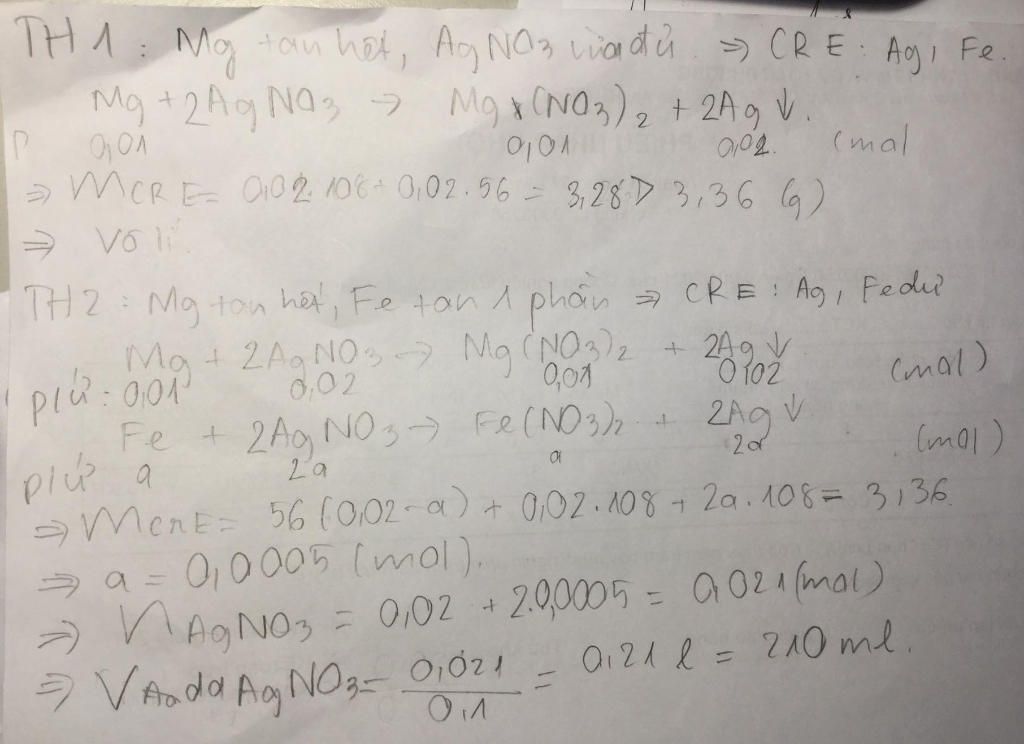 TH1: Mg tan hết, AgNO3 vừa đủ ⇒ CRE: Ag, Fe.
Mg + 2AgNO3 → Mg(NO3)2 + 2Ag ↓.
P 0,01 0,01 0,02 (mol
⇒ MCRE= 0,02.108+0,02.56 = 3,28 D 3,36 (g)
⇒ Vô lí
TH2: Mg tan hết, Fe tan 1 phần ⇒ CRE: Ag, Fe dư
Mg + 2AgNO3 → Mg(NO3)2 + 2Ag ↓
p/ứ: 0,01 0,02 0,01 0,02 (mol)
Fe + 2AgNO3 → Fe(NO3)2 + 2Ag ↓
p/ứ a 2a a 2a (mol)
⇒ MCRE= 56(0,02-a) + 0,02.108 + 2a.108 = 3,36
⇒ a = 0,0005 (mol).
⇒ nAgNO3 = 0,02 + 2.0,0005 = 0,021 (mol)
⇒ V dd AgNO3 = 0,021/0,1 = 0,21 l = 210 ml.